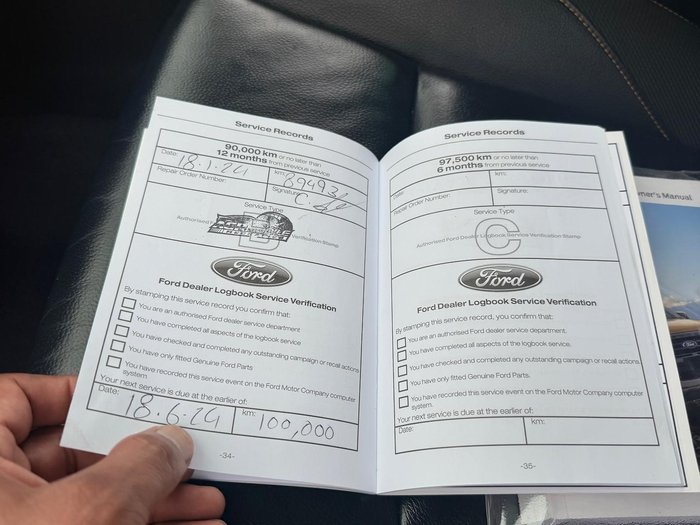 Service Records
90,000 km or no later than
12 months from previous service
Date: 18.1.24
km:
Repair Order Number:
Signature:
Service Type
Authorised Verification Stamp
Ford
Ford Dealer Logbook Service Verification
By stamping this service record you confirm that:
You are an authorised Ford dealer service department
You have completed all aspects of the logbook service
You have checked and completed any outstanding campaign or recall actions
You have only fitted Genuine Ford Parts
You have recorded this service event on the Ford Motor Company computer
system.
Your next service is due at the earlier of:
Date: 18.6.24
km: 100,000
-34-
Service Records
97,500 km or no later than
6 months from previous service
Date:
km:
Repair Order Number:
Signature:
Service Type
C
Authorised Ford Dealer Logbook Service Verification Stamp
Ford
Ford Dealer Logbook Service Verification
By stamping this service record, you confirm that:
You are an authorised Ford dealer service department.
You have completed all aspects of the logbook service.
You have checked and completed any outstanding campaign or recall actions.
You have only fitted Genuine Ford Parts.
You have recorded this service event on the Ford Motor Company computer
system.
Your next service is due at the earlier of:
Date:
km:
-35-
ner's Manual